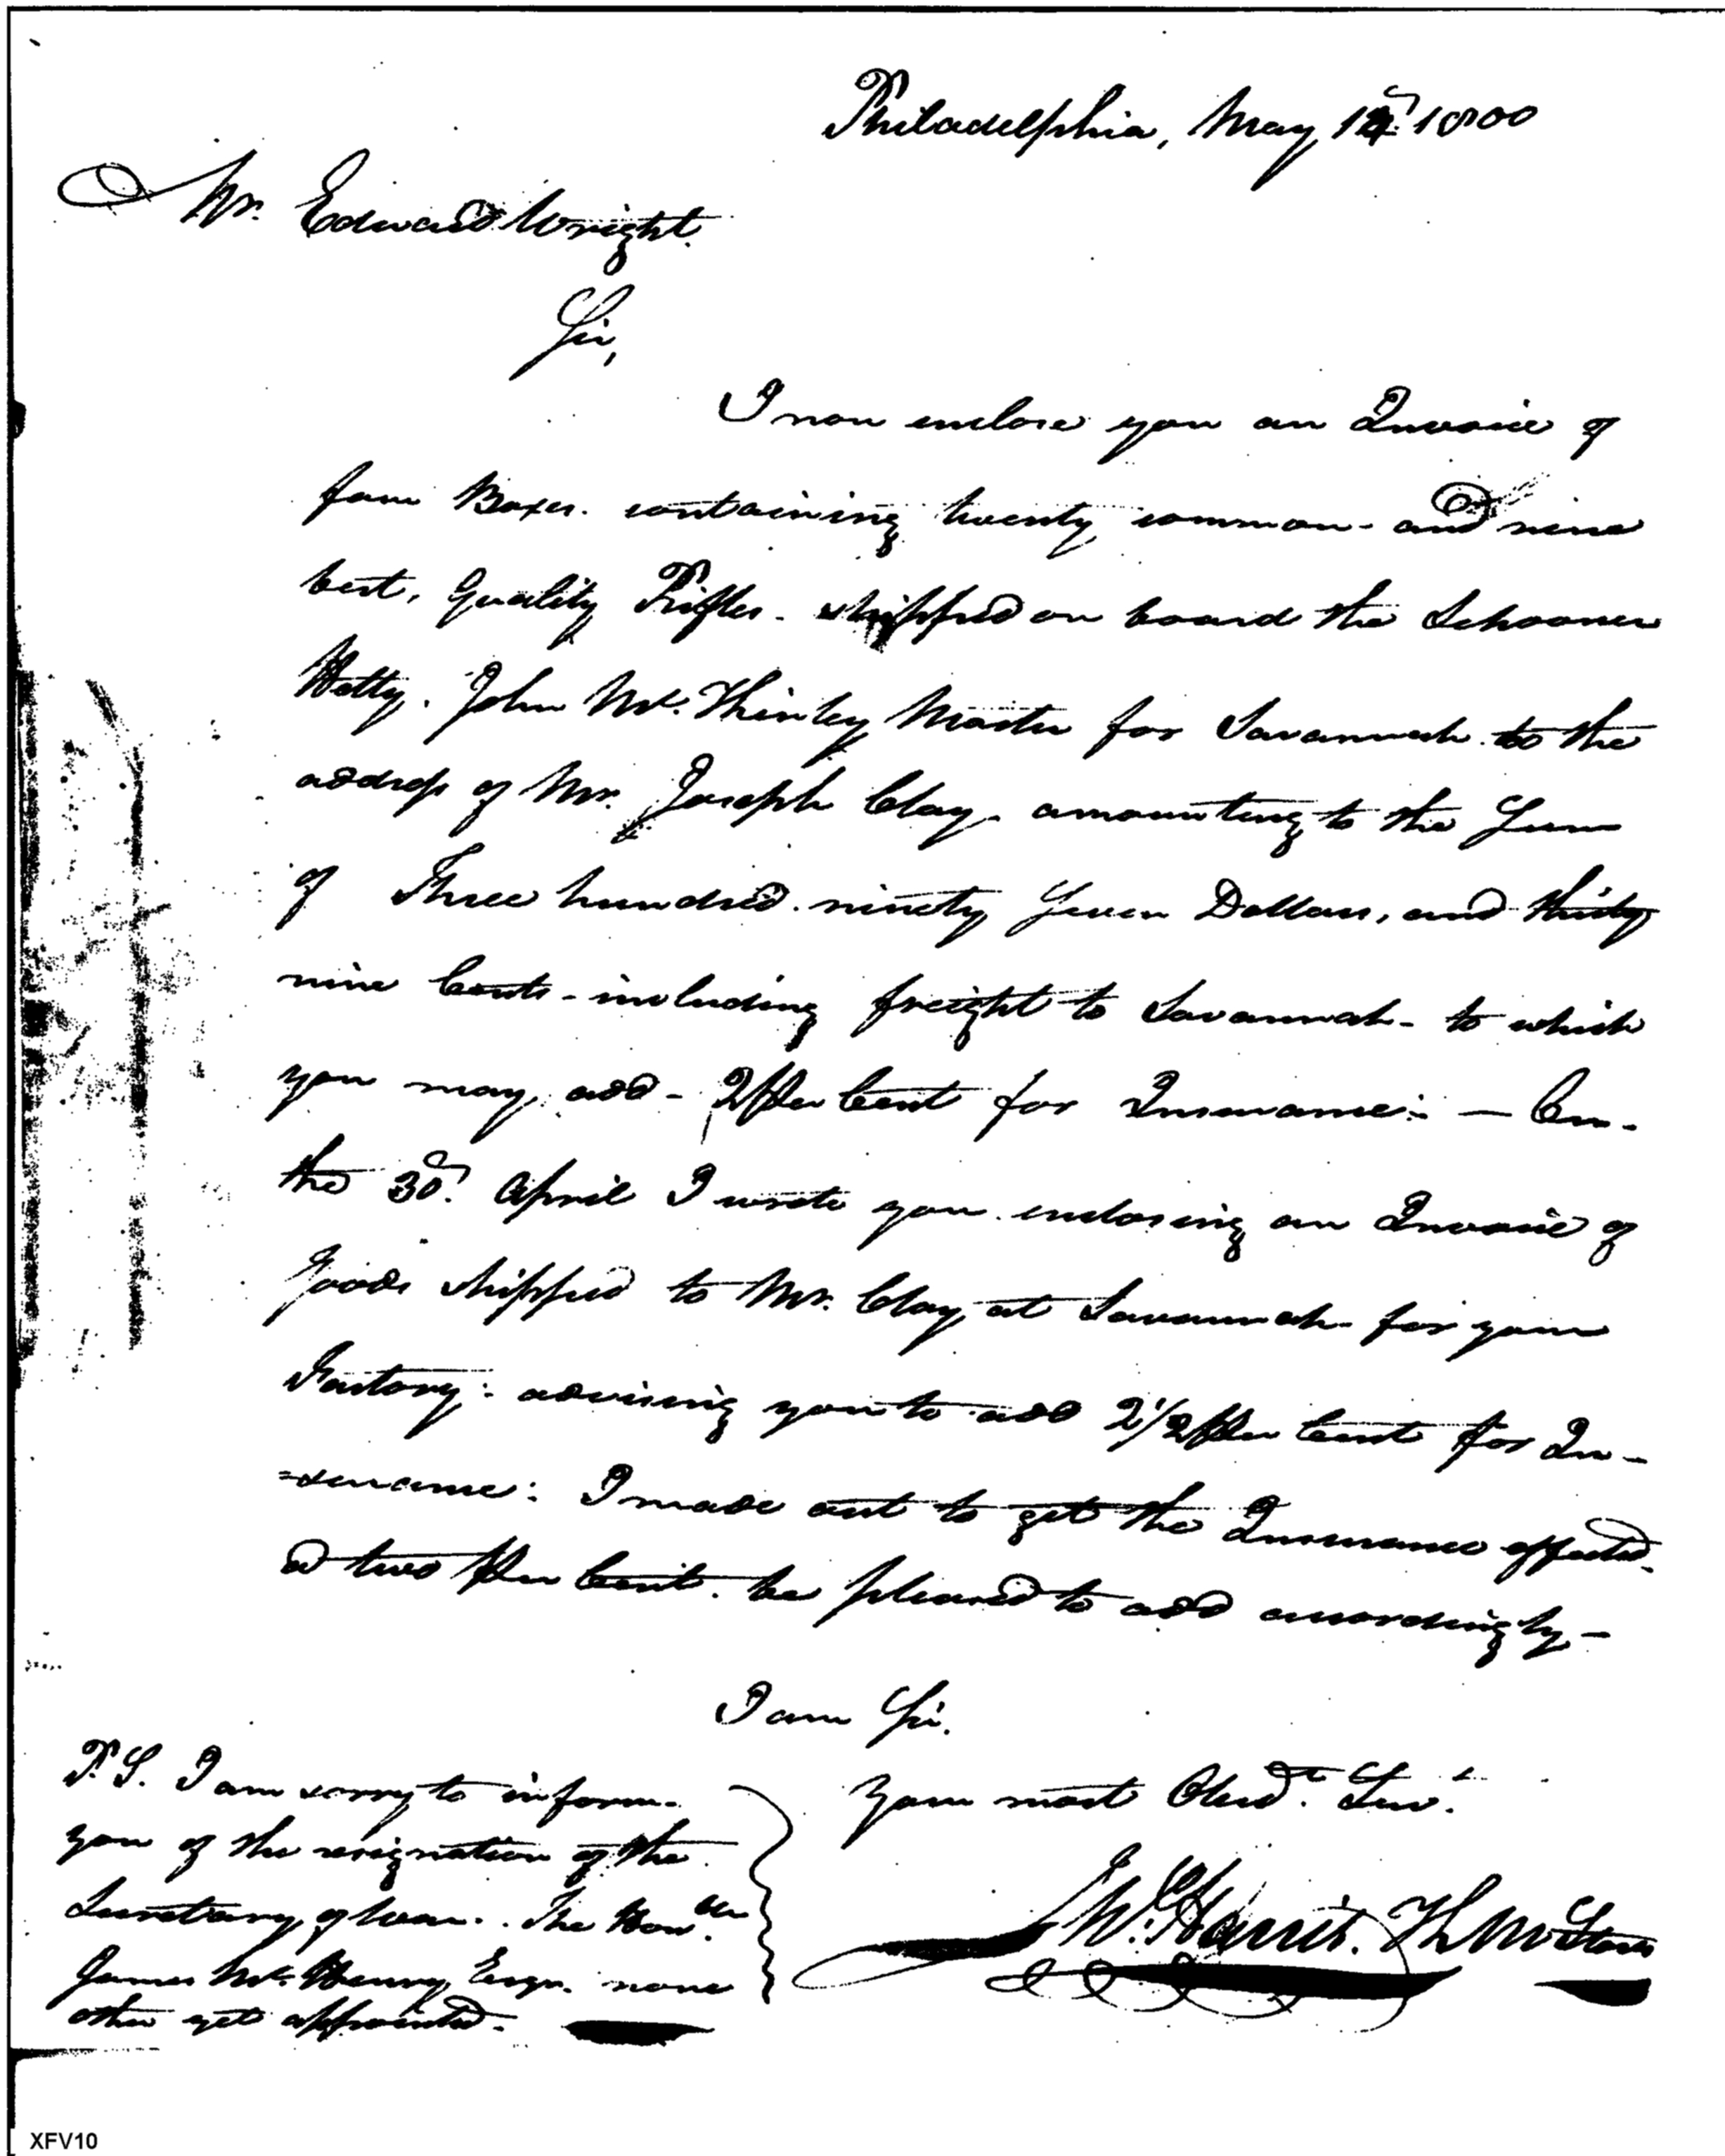 Philadelphia, May 14th 1800
Mr. Edward Wright.
Sir,
I now enclose you an Invoice of
four Boxes. containing twenty common - and nine
best, quality Rifles - shipped on board the Schooner
Hetty. John Mc. Thinley Master for Savannah to the
address of Mr. Joseph Clay. amounting to the Sum
of Three hundred ninety Seven Dollars, and thirty
nine Cents - including freight to Savannah - to which
you may add - 2 Per Cent for Insurance: — On -
the 30th April I wrote you enclosing an Invoice of
Goods shipped to Mr. Clay at Savannah for your
Factory: advising you to add 2 1/2 Per Cent for In -
=surance: I made out to get the Insurance effected.
a two Per Cent. be pleased to add accordingly -
I am Sir.
Your most Obed.t Ser.t
P.S. I am sorry to inform
you of the resignation of the
Secretary of War. The Hon.ble
James Mc. Henry, Esqr. none
other yet appointed.
W. Harris. Stores
XFV10